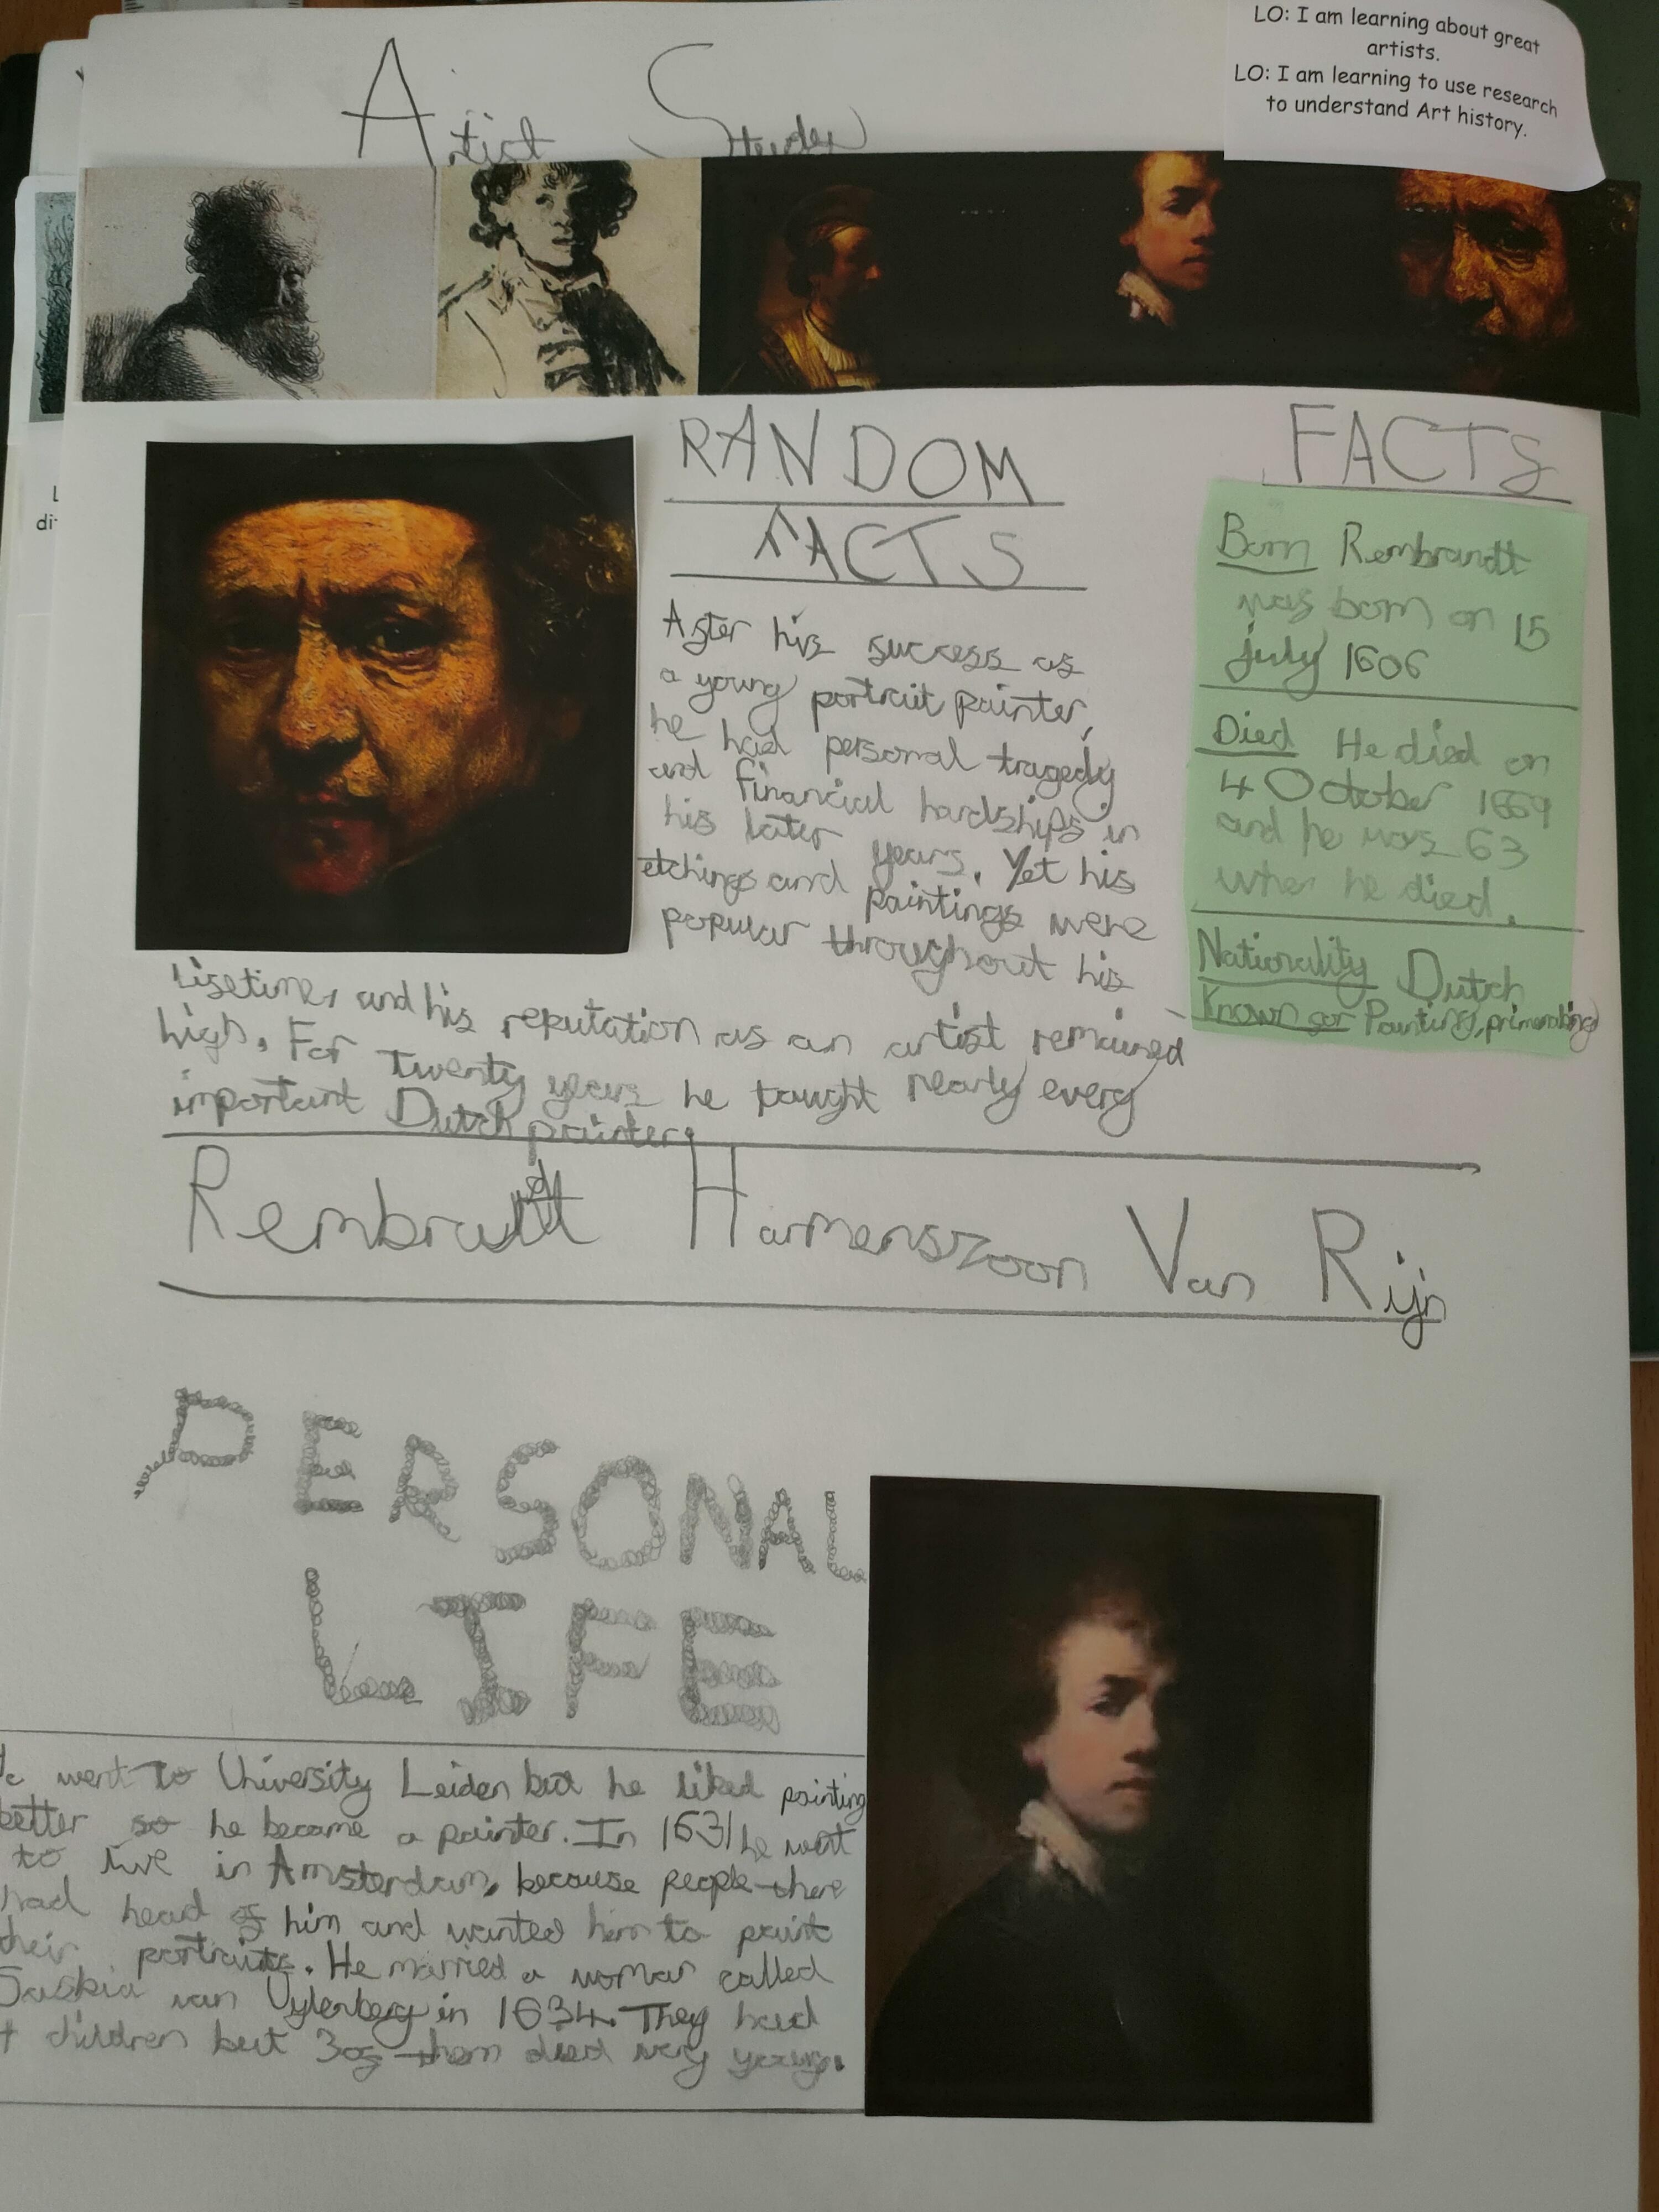 LO: I am learning about great
artists.
LO: I am learning to use research
to understand Art history.
Artist Study
RANDOM
FACTS
After his success as
a young portrait painter,
he had personal tragedy
and financial hardships in
his later years. Yet his
etchings and paintings were
popular throughout his
lifetime, and his reputation as an artist remained
high. For twenty years he taught nearly every
important Dutch painter.
FACTS
Born Rembrandt
was born on 15
july 1606
Died He died on
4 October 1669
and he was 63
when he died.
Nationality Dutch
Known for Painting,
Rembrandt Harmenszoon Van Rijn
PERSONAL
LIFE
went to University Leiden but he liked painting
better so he became a painter. In 1631 he went
to live in Amsterdam, because people there
had heard of him and wanted him to paint
their portraits. He married a woman called
Saskia van Uylenberg in 1634. They had
children but 3 of them died very young.
L
di